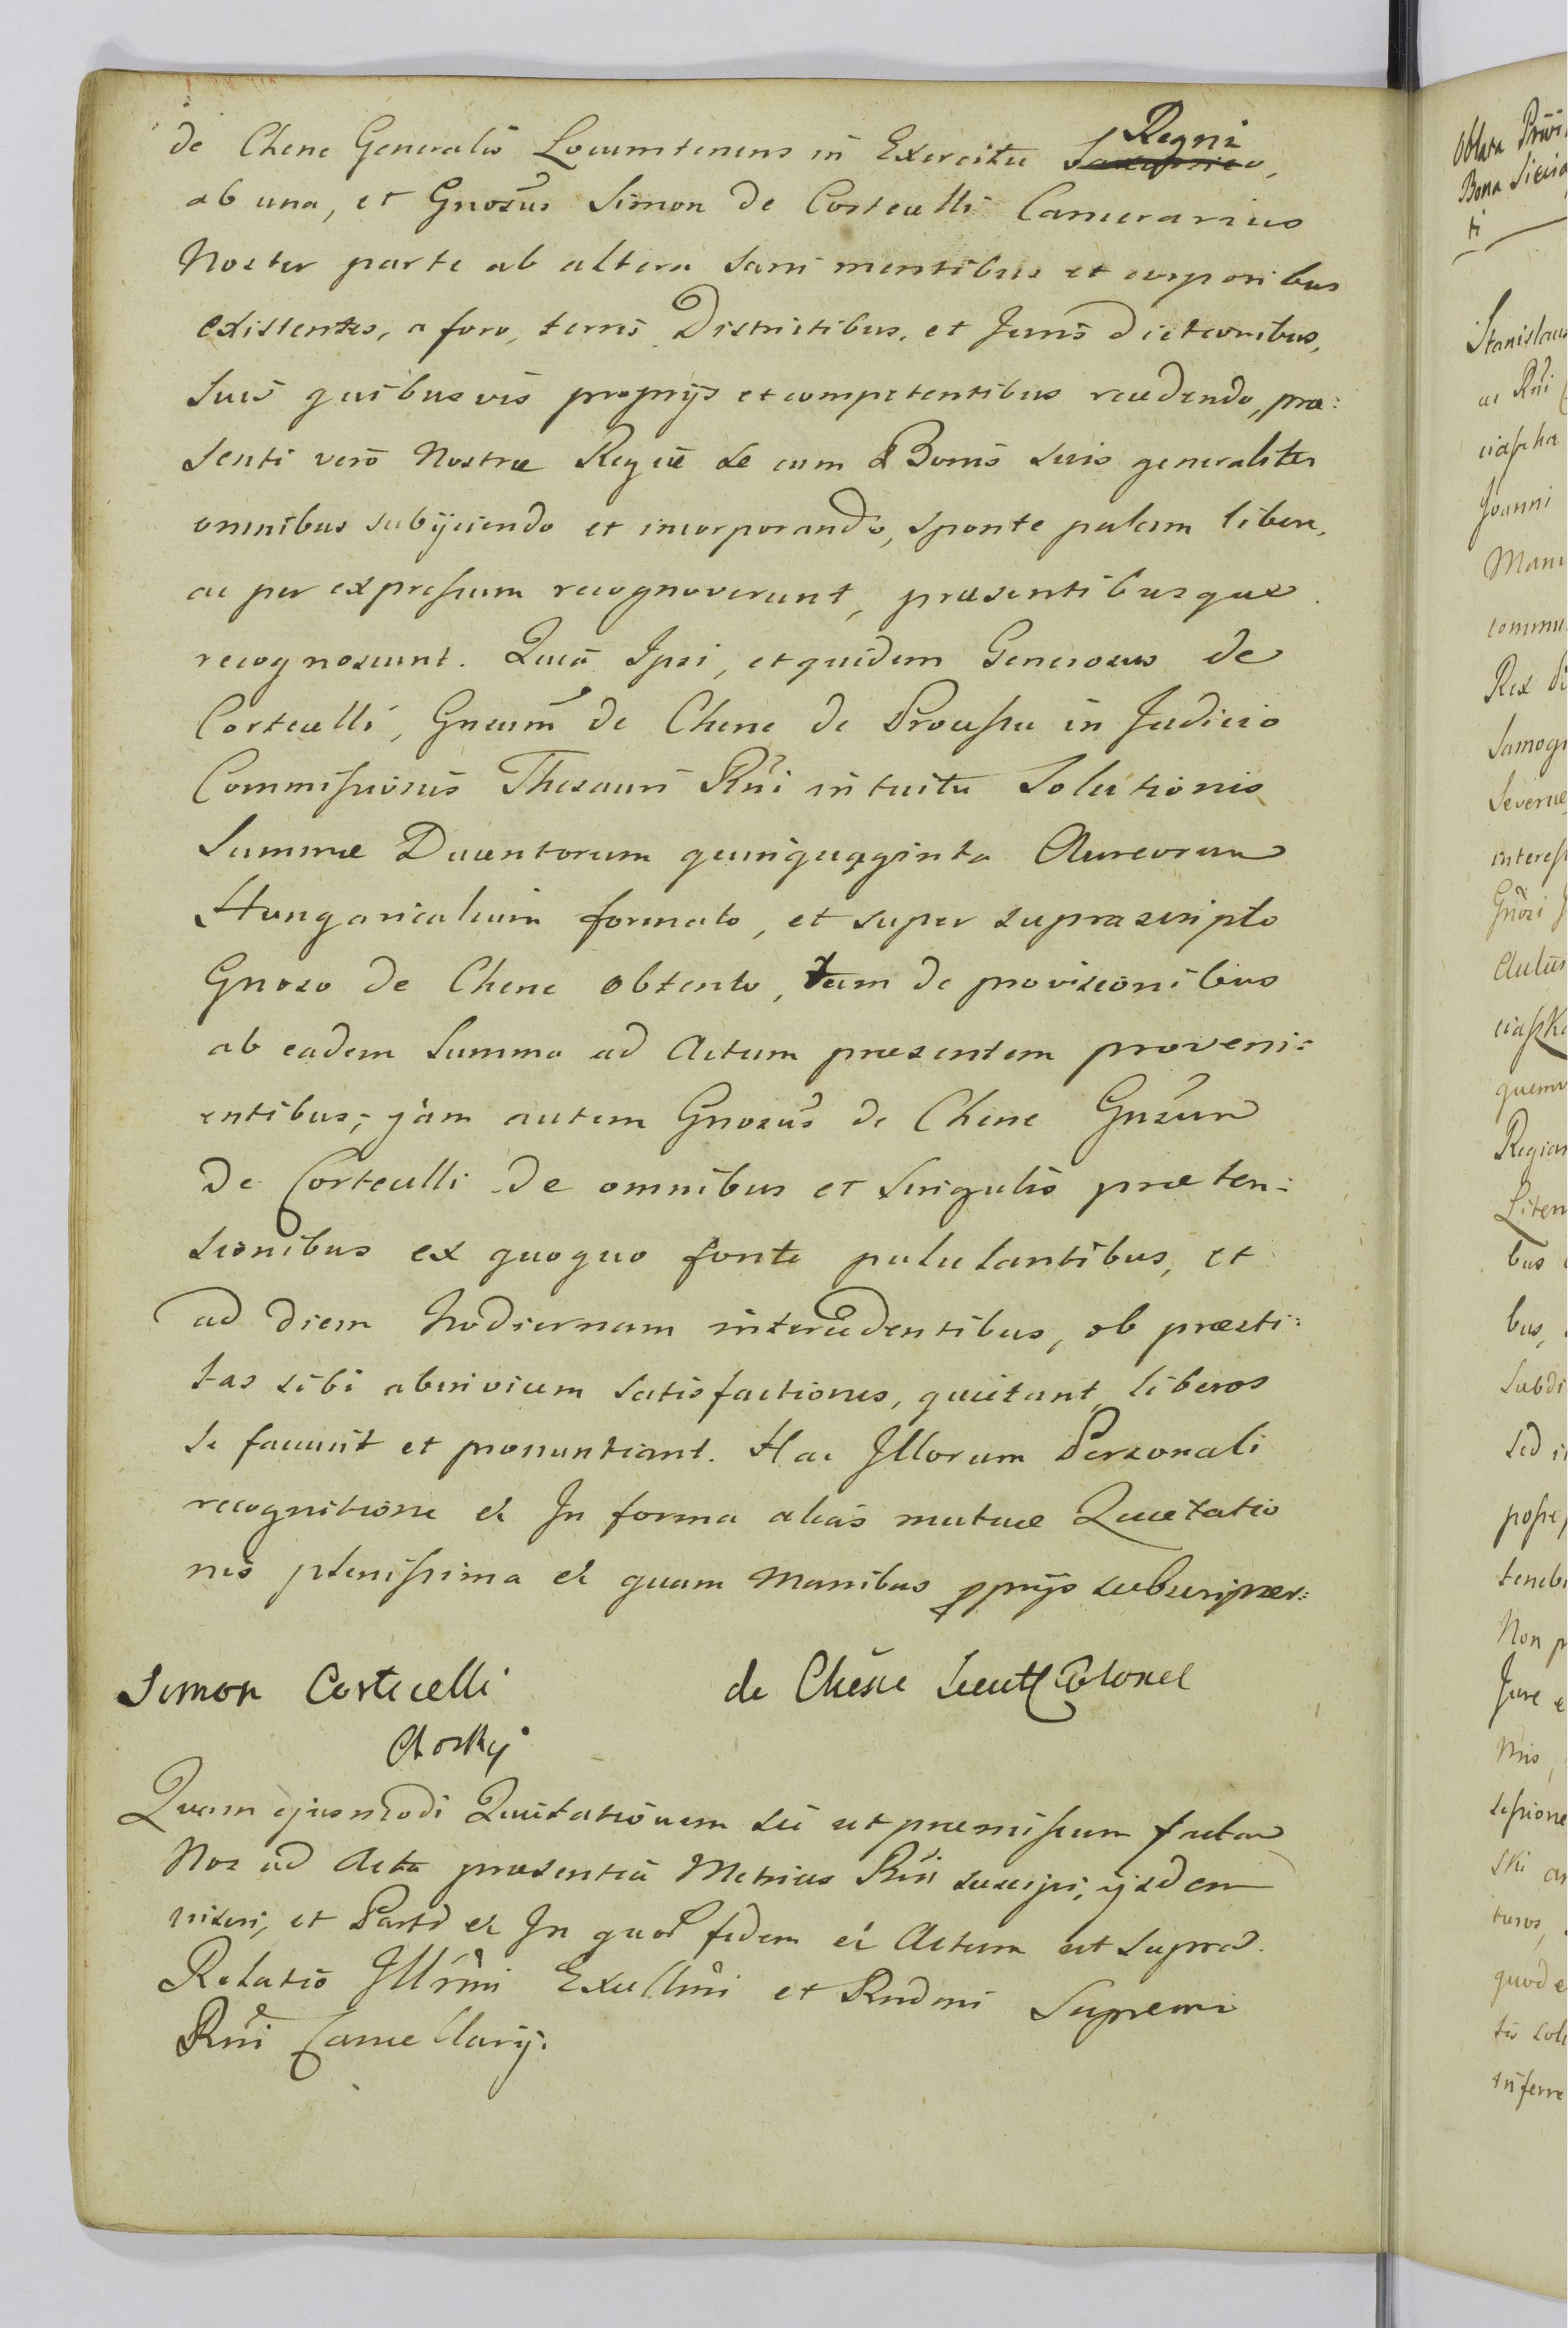 de Chene Generalis Locumtenens in Exercitu Regni
ab una, et Gnosus Simon de Corticelli Camerarius
Noster parte ab altera sani mentibus et corporibus
existentes, a foro, terris Districtibus, et Jurisdictionibus,
Suis quibusvis proprijs et competentibus recedendo, præ:
senti vero Nostræ Regiæ se cum Bonis suis generaliter
omnibus subijciendo et incorporando, sponte palam libere,
ac per expressum recognoverunt, præsentibusque
recognoscunt. Quia Ipsi, et quidem Generosus de
Corticelli, Gnsum de Chene de Processu in Judicio
Commissionis Thesauri Rni intuitu Solutionis
Summæ Ducentorum quinquaginta Aureorum
Hungaricalium formato, et super suprascripto
Gnoso de Chene obtento, tum de provisionibus
ab eadem Summa ad Actum præsentem proveni:
entibus; jam autem Gnosus de Chene Gnsum
de Corticelli de omnibus et singulis præten:
sionibus ex quoquo fonte pululantibus, et
ad diem hodiernam intercedentibus, ob præsti:
tas sibi abinvicem satisfactiones, quietant, liberos
se faciunt et pronuntiant. Hac Illorum Personali
recognitione et In forma alias mutuæ Quietatio
nis plenissima et quam Manibus pprijs subscripser:
Simon Corticelli
de Chêne Lieutt Colonel
Quam ejusmodi Quietationem sic ut præmissum factam
Nos ad Acta præsentia Metrices Rni suscipi, ijsdem
inseri, et Parti et In quor fidem et Actum ut supra.
Relatio Illrmi Excellmi et Rndmi Supremi
Rni Cancellarij.
Oblata Privi
Bona Sicia
ti
Stanislaus
ac Rni
Joanni
commu
Rex
Samogi
Severiæ
interess
Gnosi
quemv
Regiam
Liter
bus
bus,
subdi
sed
posse
teneb
Non p
Jure e
sessione
ski
turos,
quod e
inferre